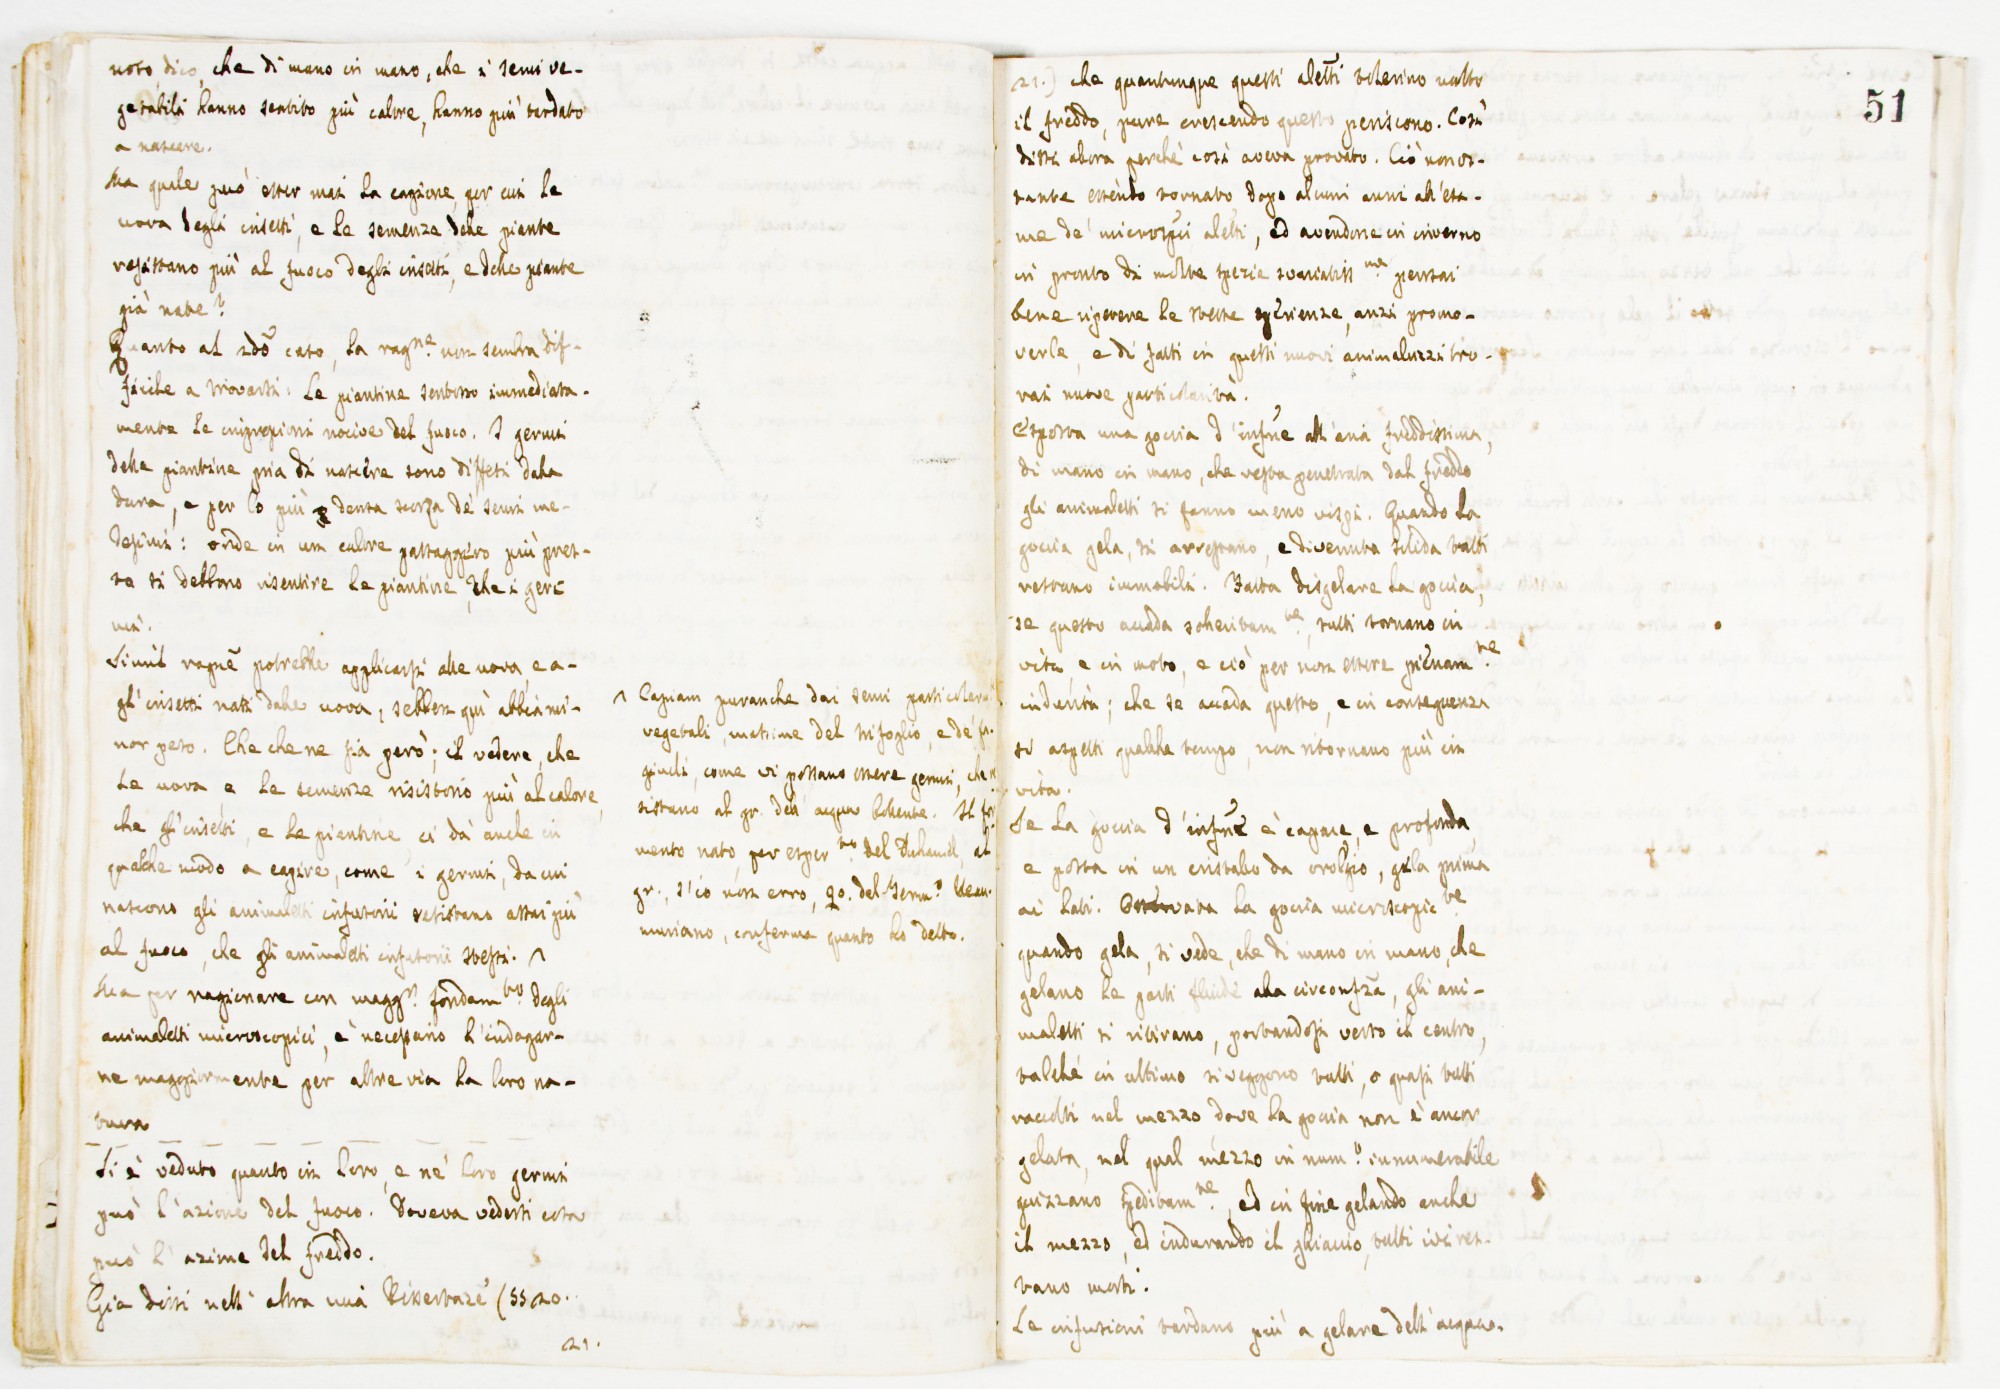 noto, dico, che di mano in mano, che i semi ve-
getabili hanno sentito più calore, hanno più tardato
a nascere.
Ma quale può esser mai la cagione, per cui le
uova degli insetti, e le semenze delle piante
resistano più al fuoco degli insetti, e delle piante
già nate?
Quanto al 2do cato, la ragne non sembra dif-
ficile a trovarsi: Le piantine sentono immediata-
mente le impressioni nocive del fuoco. I germi
delle piantine pria di nascere sono difesi dalla
dura, e per lo più densa scorza de' semi me-
desimi: onde in un calore passaggiero più pres-
to si debbono risentire le piantine, che i ger-
mi.
Simil ragne potrebbe applicarsi alle uova, e a-
gl'insetti nati dalle uova, sebben quì abbia mi-
nor peso. Che che ne sia però; il vedere, che
le uova, e le semenze resistono più al calore,
che gl'insetti, e le piantine, ci dà anche in
qualche modo a capire, come i germi, da cui
nascono gli animaletti infusorii resistano assai più
al fuoco, che gli animaletti infusorii stessi. ^
Ma per ragionare con maggr. fondamto degli
animaletti microscopici, è necessario l'indagar-
ne maggiormente per altre via la loro na-
tura
Si è veduto quanto in loro, e ne' loro germi
può l'azione del fuoco. Doveva vedersi cosa
può l'azione del freddo.
Già dissi nell'altra mia Dissertaze (§§ 20.
21.
^ Capiam pur anche dai semi particolari
vegetali, massime del trifoglio, e de' fa-
giuoli, come vi possano essere germi, che re
sistano al gr. dell'acqua bollente. Il for
mento nato, per esperto del Duhamel, al
gr., s'io non erro, 90. del Termo Reau-
muriano, conferma quanto ho detto.
51
21.) che quantunque questi aletti tolerino molto
il freddo, pure crescendo questo periscono. Così
dissi allora perchè così aveva provato. Ciò nonos-
tante essendo tornato dopo alcuni anni all'esa-
me de' microspici aletti, ed avendone in inverno
in pronto di molte spezie svariatissme pensai
bene ripetere le stesse sperienze, anzi promo-
verle, e di fatti in questi nuovi animaluzzi tro-
vai nuove particolarità.
Esposta una goccia d'infne all'aria freddissima,
di mano in mano, che resta penetrata dal freddo
gli animaletti si fanno meno vispi. Quando la
goccia gela, si arrestano, e divenuta solida tutti
restano immobili. Fatta disgelare la goccia,
se questo accada sollecitamte, tutti tornano in
vita, e in moto, e ciò per non essere pienamte
indurita; che se accada questo, e in conseguenza
si aspetti qualche tempo, non ritornano più in
vita.
Se la goccia d'infne è capace, e profonda,
e posta in un cristallo da orologio, gela prima
ai lati. Osservata la goccia microscopicte
quando gela, si vede, che di mano in mano, che
gelano le parti fluide alla circonfza, gli ani-
maletti si ritirano, portandosi verso il centro,
talché in ultimo si veggono tutti, o quasi tutti
raccolti nel mezzo dove la goccia non è ancor
gelata, nel qual mezzo in numo innumerabile
guizzano speditamte, ed in fine gelando anche
il mezzo, ed indurando il ghiaccio, tutti ivi res-
tano morti.
Le infusioni tardano più a gelare dell'acqua.